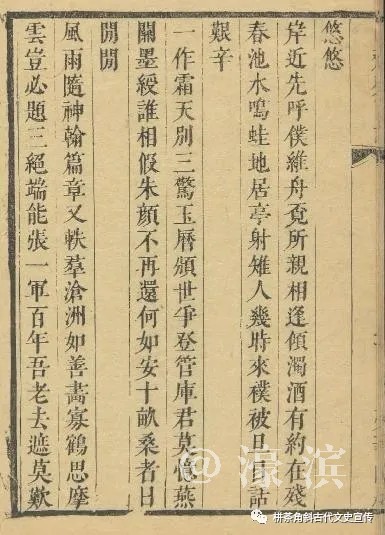 悠悠
岸近先呼僕維舟覓所親相逢傾濁酒有約在殘
春池水鳴蛙地居亭射雉人幾時來襆被日日話
艱辛
一作霜天別三驚玉曆頒世爭登管庫君莫憶燕
關墨綬誰相假朱顏不再還何如安十畝桑者日
閒閒
風雨隨神翰篇章又軼羣滄洲如善畫寡鶴思摩
雲豈必題三絕端能張一軍百年吾老去遮莫歎
@濠滨
栟茶角斜古代文史宣传